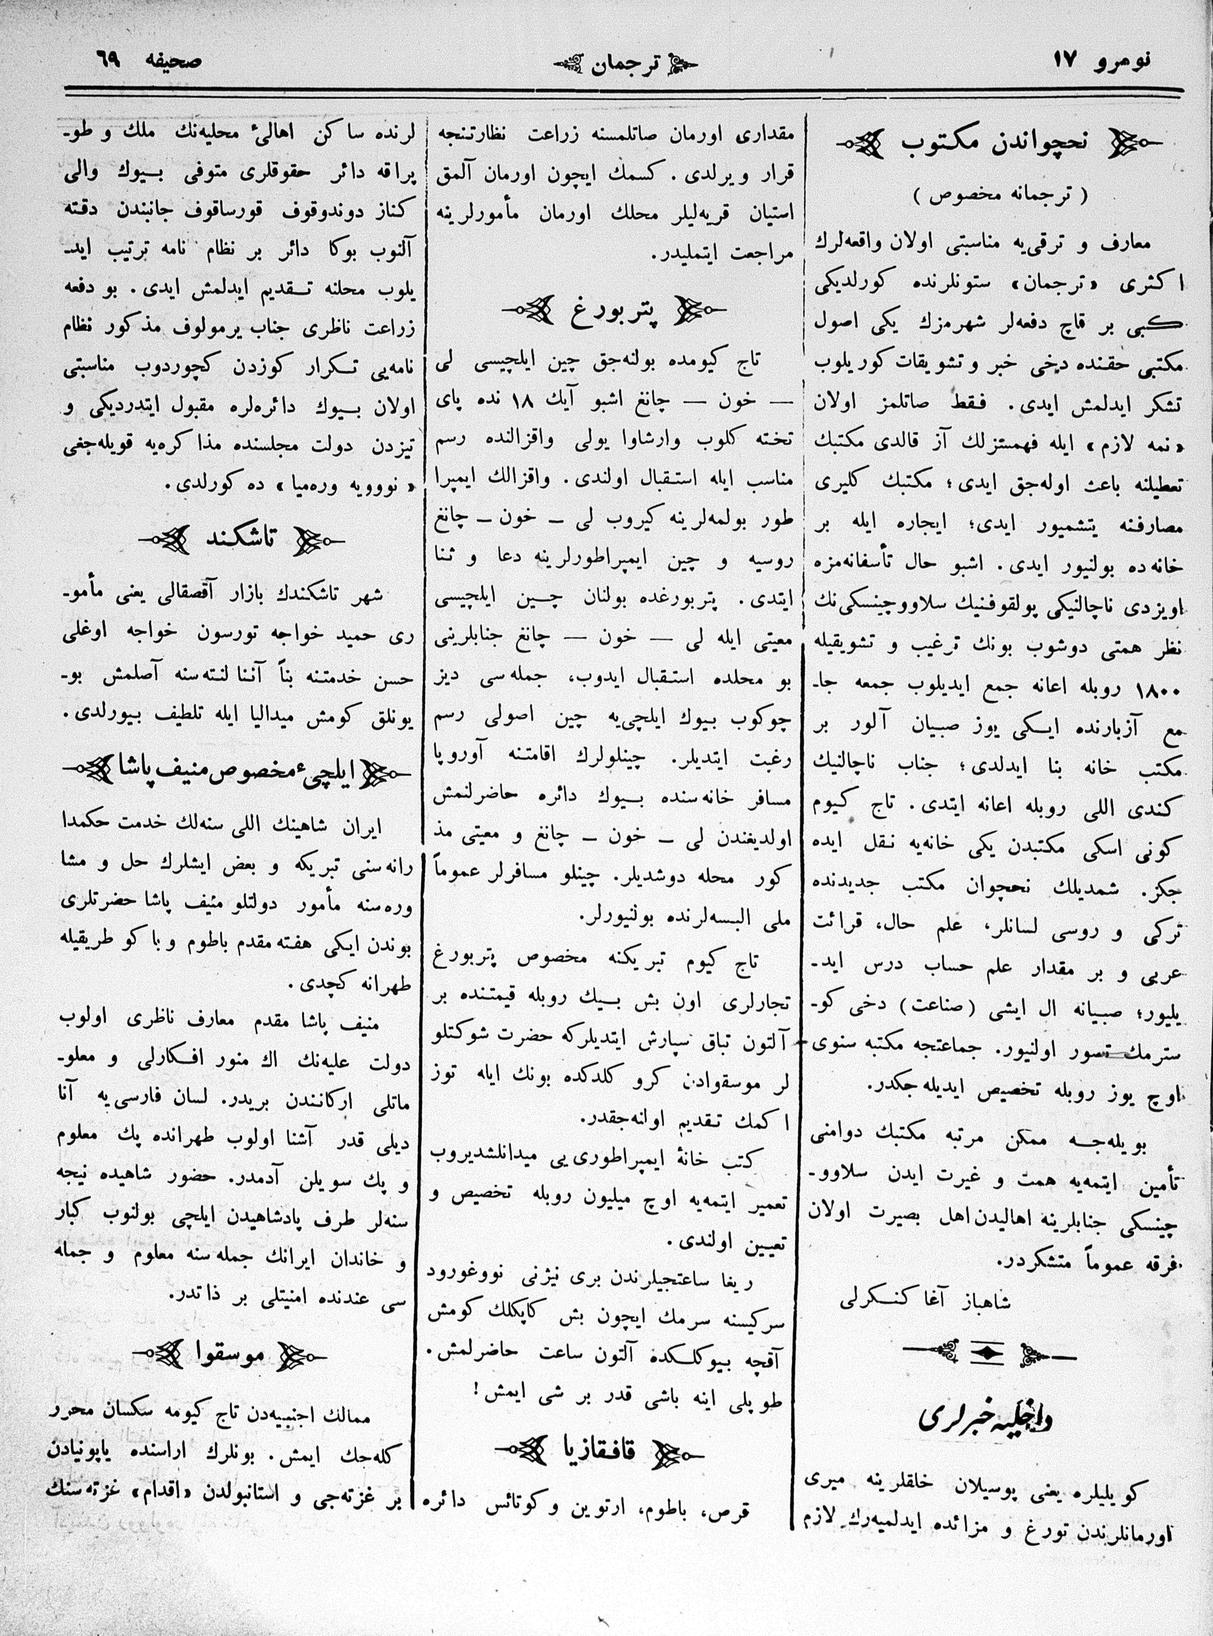 نومرو ١٧
ترجمان
صحيفه ٦٩
نخچواندن مكتوب
( ترجمانه مخصوص )
معارف و ترقى‌يه مناسبتى اولان واقعه‌لرك
اكثرى «ترجمان» ستونلرنده كورلديكى
كبى بر قاچ دفعه‌لر شهرمزك يكى اصول
مكتبى حقنده دخى خبر و تشويقات كوريلوب
تشكر ايدلمش ايدى. فقط صاتلمز اولان
«نمه لازم» ايله فهمسزلك آز قالدى مكتبك
تعطيلنه باعث اوله‌جق ايدى؛ مكتبك كليرى
مصارفنه يتشميور ايدى؛ ايجاره ايله بر
خانه‌ده بولنيور ايدى. اشبو حال تأسفانه‌مزه
اويزدى ناچالنيكى پولقوفنيك سلاووچينسكى‌نك
نظر همتى دوشوب بونك ترغيب و تشويقيله
١٨٠٠ روبله اعانه جمع ايديلوب جمعه جا-
مع آزبارنده ايكى يوز صبيان آلور بر
مكتب خانه بنا ايدلدى؛ جناب ناچالنيك
كندى اللى روبله اعانه ايتدى. تاج كيوم
كونى اسكى مكتبدن يكى خانه‌يه نقل ايده
جكز. شمديلك نخچوان مكتب جديدنده
تركى و روسى لسانلر، علم حال، قرائت
عربى و بر مقدار علم حساب درس ايد-
يليور؛ صبيانه ال ايشى (صناعت) دخى كو-
سترمك تصور اولنيور. جماعتجه مكتبه سنوى
اوچ يوز روبله تخصيص ايديله‌جكدر.
بويله‌جه ممكن مرتبه مكتبك دوامنى
تأمين ايتمه‌يه همت و غيرت ايدن سلاوو-
چينسكى جنابلرينه اهاليدن اهل بصيرت اولان
فرقه عموماً متشكردر.
شاهباز آغا كنكرلى
داخليه خبرلرى
كويليلره يعنى پوسيلان خلقلرينه ميرى
اورمانلرندن تورغ و مزائده ايدلميه‌رك لازم
مقدارى اورمان صاتلمسنه زراعت نظارتنجه
قرار ويرلدى. كسمك ايچون اورمان آلمق
استيان قريه‌ليلر محلك اورمان مأمورلرينه
مراجعت ايتمليدر.
پتربورغ
تاج كيومده بولنه‌جق چين ايلچيسى لى
— خون — چانغ اشبو آيك ١٨ نده پاى
تخته كلوب وارشاوا يولى واقزالنده رسم
مناسب ايله استقبال اولندى. واقزالك ايمپرا
طور بولمه‌لرينه كيروب لى — خون — چانغ
روسيه و چين ايمپراطورلرينه دعا و ثنا
ايتدى. پتربورغده بولنان چين ايلچيسى
معيتى ايله لى — خون — چانغ جنابلرينى
بو محلده استقبال ايدوب، جمله‌سى ديز
چوكوب بيوك ايلچى‌يه چين اصولى رسم
رغبت ايتديلر. چينلولرك اقامتنه آوروپا
مسافر خانه‌سنده بيوك دائره حاضرلنمش
اولديغندن لى — خون — چانغ و معيتى مذ
كور محله دوشديلر. چينلو مسافرلر عموماً
ملى البسه‌لرنده بولنيورلر.
تاج كيوم تبريكنه مخصوص پتربورغ
تجارلرى اون بش بيك روبله قيمتنده بر
آلتون تباق سپارش ايتديلركه حضرت شوكتلو
لر موسقوادن كرو كلدكده بونك ايله توز
اكمك تقديم اولنه‌جقدر.
كتب خانۀ ايمپراطورى‌يى ميدانلشديروب
تعمير ايتمه‌يه اوچ ميليون روبله تخصيص و
تعيين اولندى.
ريغا ساعتجيلرندن برى نيژنى نووغورود
سركيسنه سرمك ايچون بش كاپكلك كومش
آقچه بيوكلكده آلتون ساعت حاضرلمش.
طوپلى اينه باشى قدر بر شى ايمش!
قافقازيا
قرص، باطوم، ارتوين و كوتائس دائره
لرنده ساكن اهالئ محليه‌نك ملك و طو-
پراقه دائر حقوقلرى متوفى بيوك والى
كناز دوندوقوف قورساقوف جانبندن دقته
آلنوب بوكا دائر بر نظام نامه ترتيب ايد-
يلوب محلنه تقديم ايدلمش ايدى. بو دفعه
زراعت ناظرى جناب يرمولوف مذكور نظام
نامه‌يى تكرار كوزدن كچوردوب مناسبتى
اولان بيوك دائره‌لره مقبول ايتدرديكى و
تيزدن دولت مجلسنده مذاكره‌يه قويله‌جغى
«نوويه وره‌ميا» ده كورلدى.
تاشكند
شهر تاشكندك بازار آقصقالى يعنى مأمو-
رى حميد خواجه تورسون خواجه اوغلى
حسن خدمتنه بناً آننا لنته‌سنه آصلمش بو-
يونلق كومش ميداليا ايله تلطيف بيورلدى.
ايلچئ مخصوص منيف پاشا
ايران شاهينك اللى سنه‌لك خدمت حكمدا
رانه‌سنى تبريكه و بعض ايشلرك حل و مشا
وره‌سنه مأمور دولتلو منيف پاشا حضرتلرى
بوندن ايكى هفته مقدم باطوم و باكو طريقيله
طهرانه كچدى.
منيف پاشا مقدم معارف ناظرى اولوب
دولت عليه‌نك اك منور افكارلى و معلو-
ماتلى اركانندن بريدر. لسان فارسى‌يه آنا
ديلى قدر آشنا اولوب طهرانده پك معلوم
و پك سويلن آدمدر. حضور شاهيده نيجه
سنه‌لر طرف پادشاهيدن ايلچى بولنوب كبار
و خاندان ايرانك جمله‌سنه معلوم و جمله
سى عندنده امنيتلى بر ذاتدر.
موسقوا
ممالك اجنبيه‌دن تاج كيومه سكسان محرر
كله‌جك ايمش. بونلرك اراسنده ياپونيادن
بر غزته‌جى و استانبولدن «اقدام» غزته‌سنك